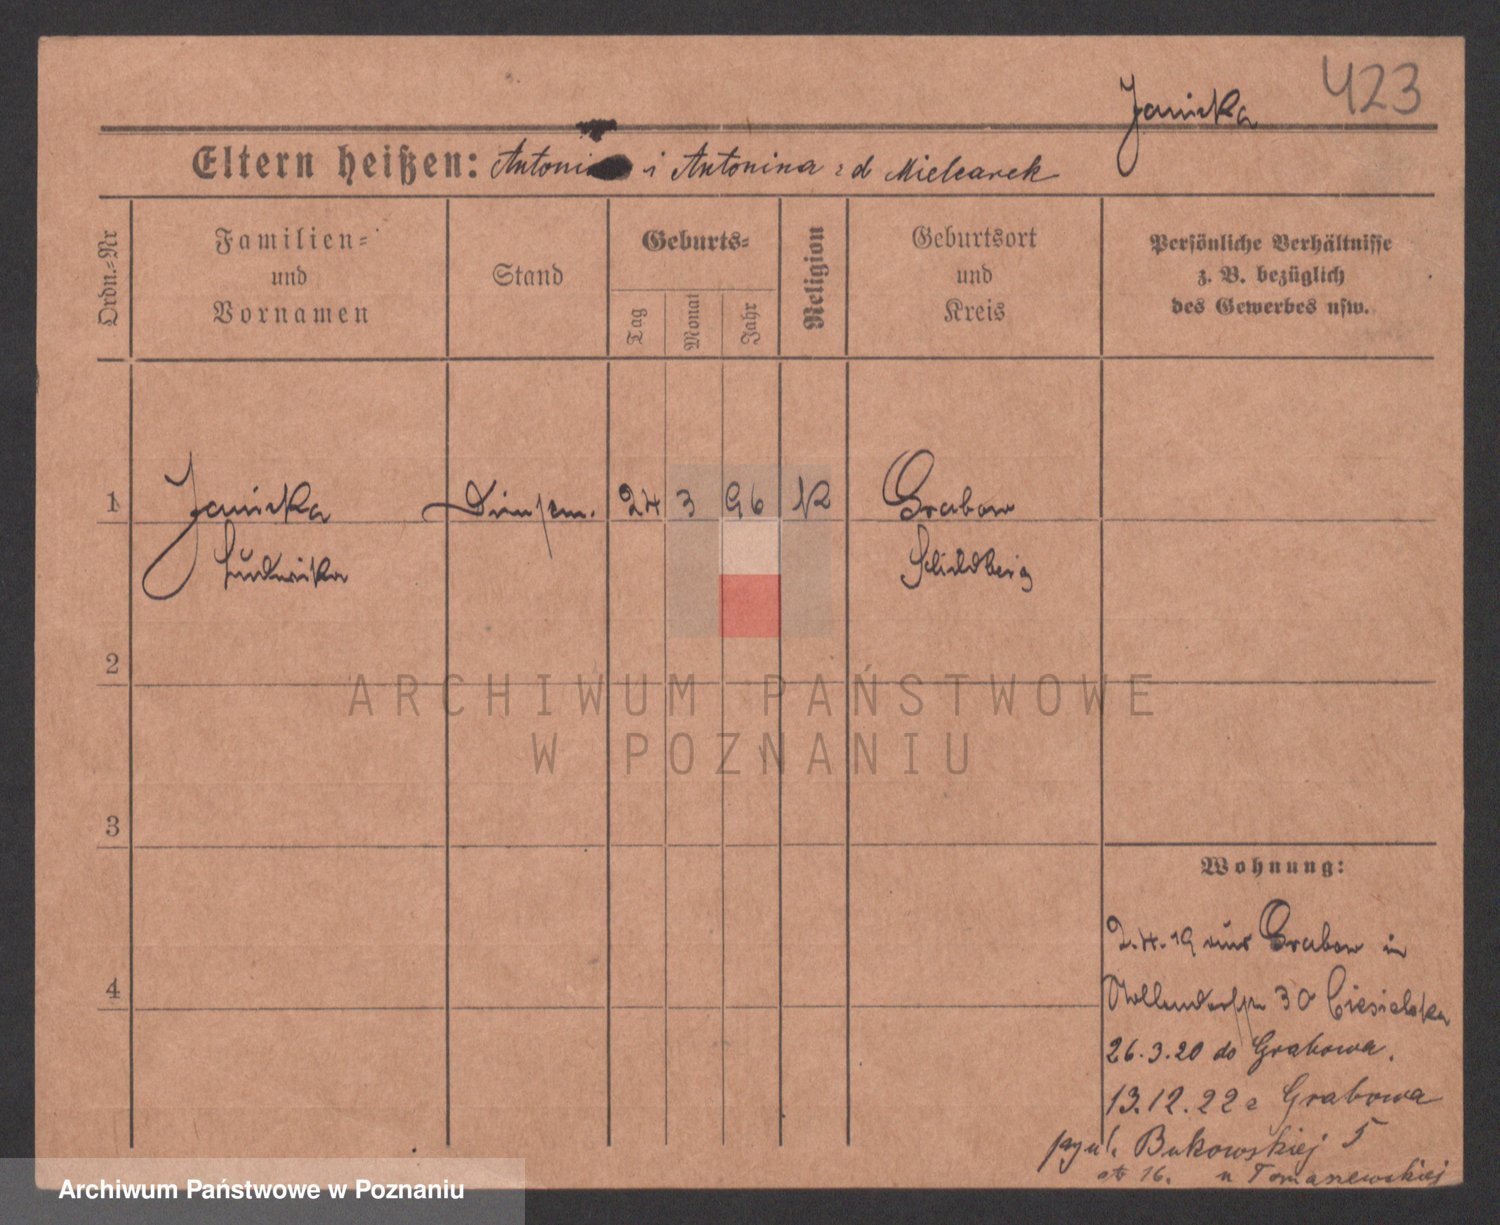 Janicka 423
Eltern heißen: Antoni i Antonina z d Mielcarek
Ordn.-Nr
Familien-
und
Vornamen
Stand
Geburts-
Tag
Monat
Jahr
Religion
Geburtsort
und
Kreis
Persönliche Verhältnisse
z. B. bezüglich
des Gewerbes usw.
1 Janicka 24 3 96 K Grabow
Ludwika Schildberg
2
ARCHIWUM PAŃSTWOWE
W POZNANIU
3
Wohnung:
2.4.19 aus Grabow in
4 30 Ciesielska
26.3.20 do Grabowa.
13.12.22 z Grabowa
Bukowskiej 5
16. u Tomaszewskiej
Archiwum Państwowe w Poznaniu